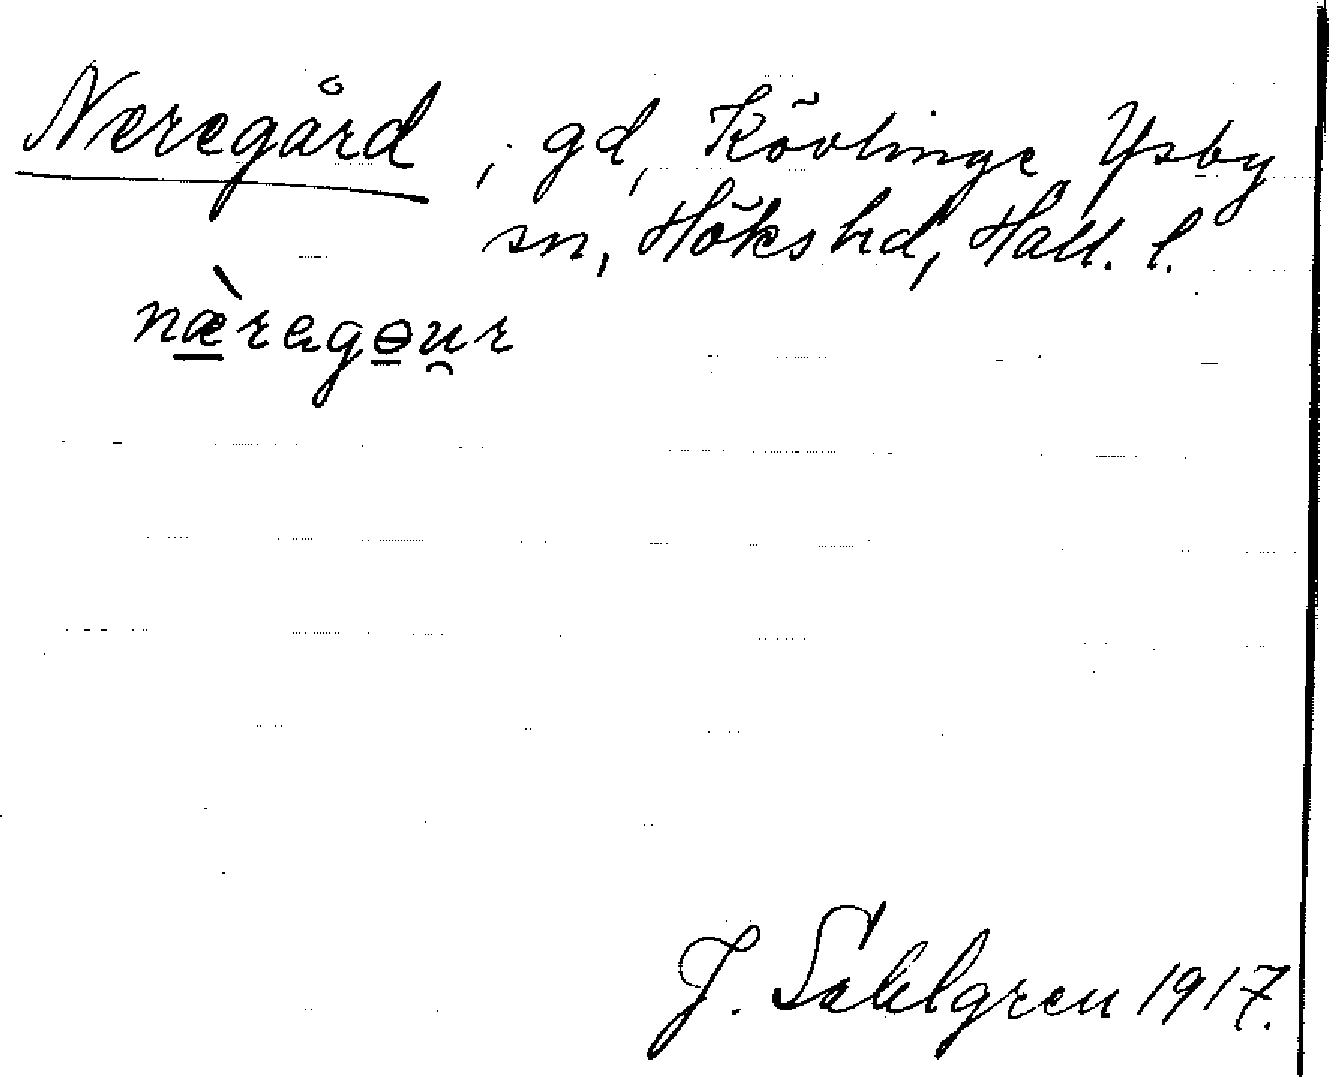 Neregård, gd, Kövlinge Ysby
sn, Höks hd, Hall. l.
næ̀ragɵu̯r
J. Sahlgren 1917.